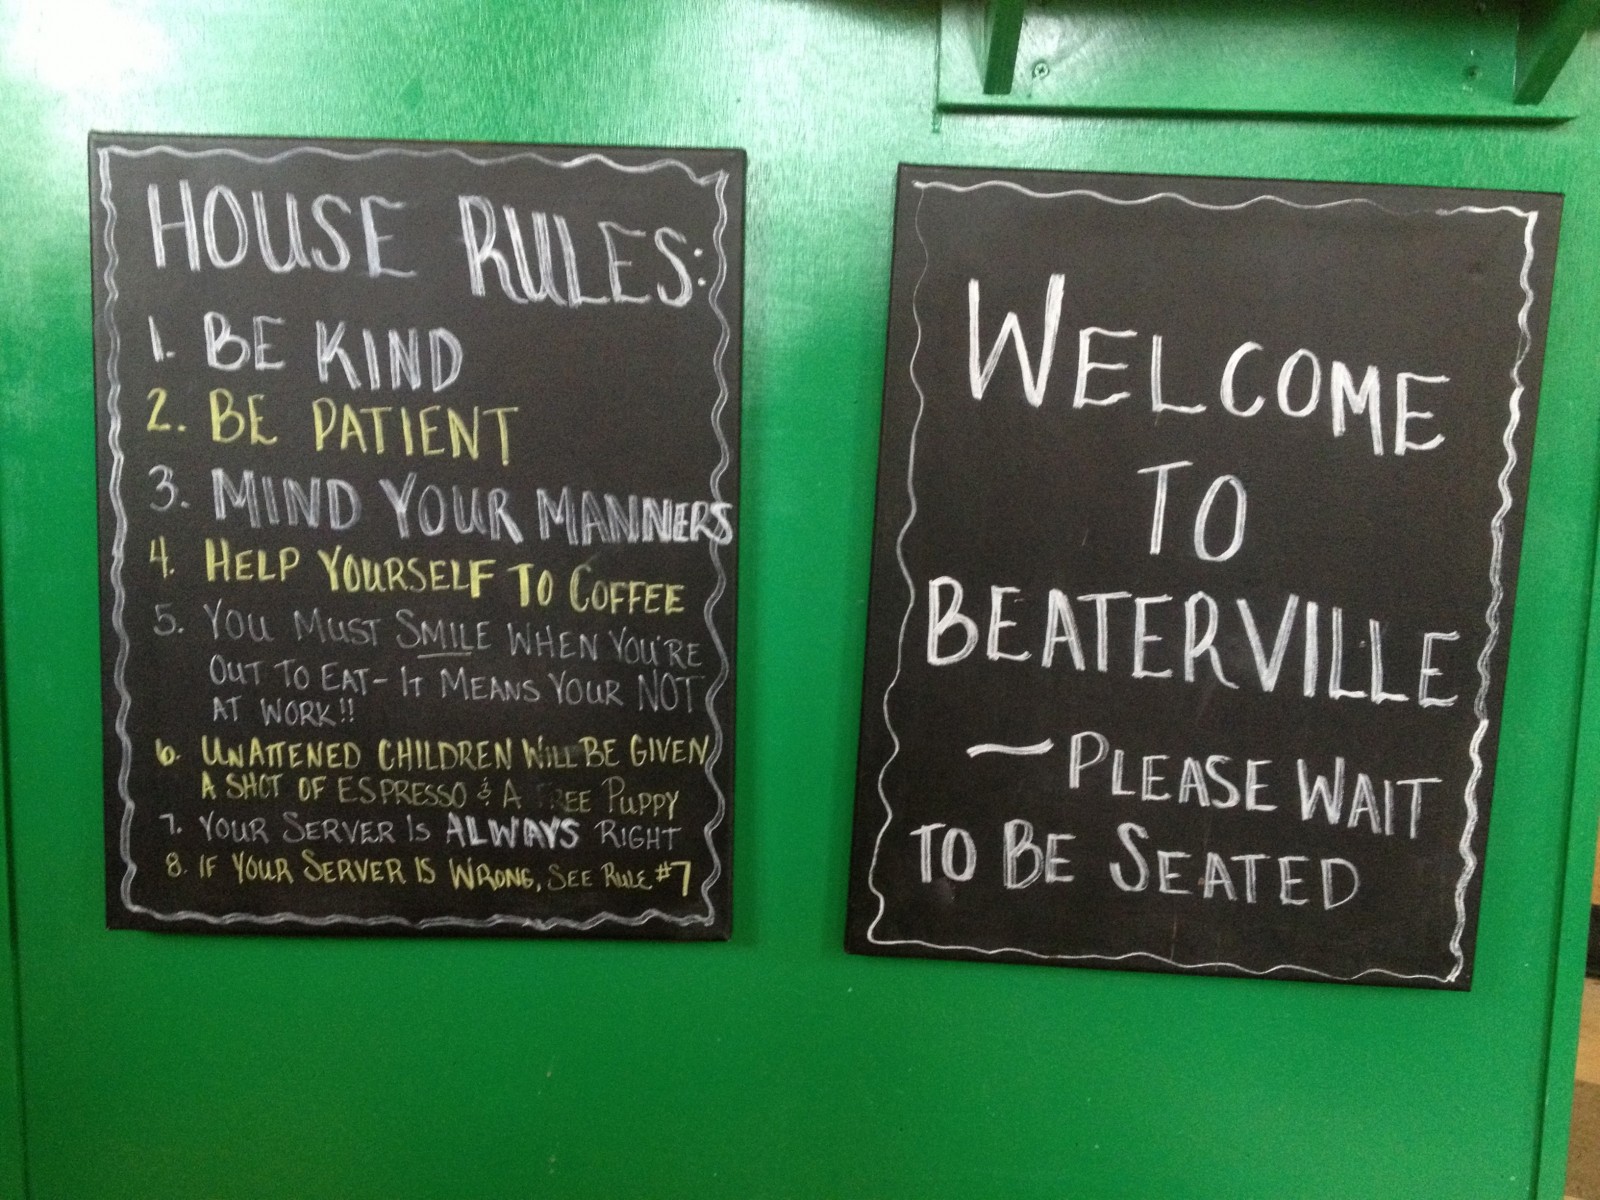 HOUSE RULES:
1. BE KIND
2. BE PATIENT
3. MIND YOUR MANNERS
4. HELP YOURSELF TO COFFEE
5. YOU MUST SMILE WHEN YOU'RE
OUT TO EAT - IT MEANS YOUR NOT
AT WORK!!
6. UNATTENED CHILDREN WILL BE GIVEN
A SHOT OF ESPRESSO & A FREE PUPPY
7. YOUR SERVER IS ALWAYS RIGHT
8. IF YOUR SERVER IS WRONG, SEE RULE #7
WELCOME
TO
BEATERVILLE
— PLEASE WAIT
TO BE SEATED